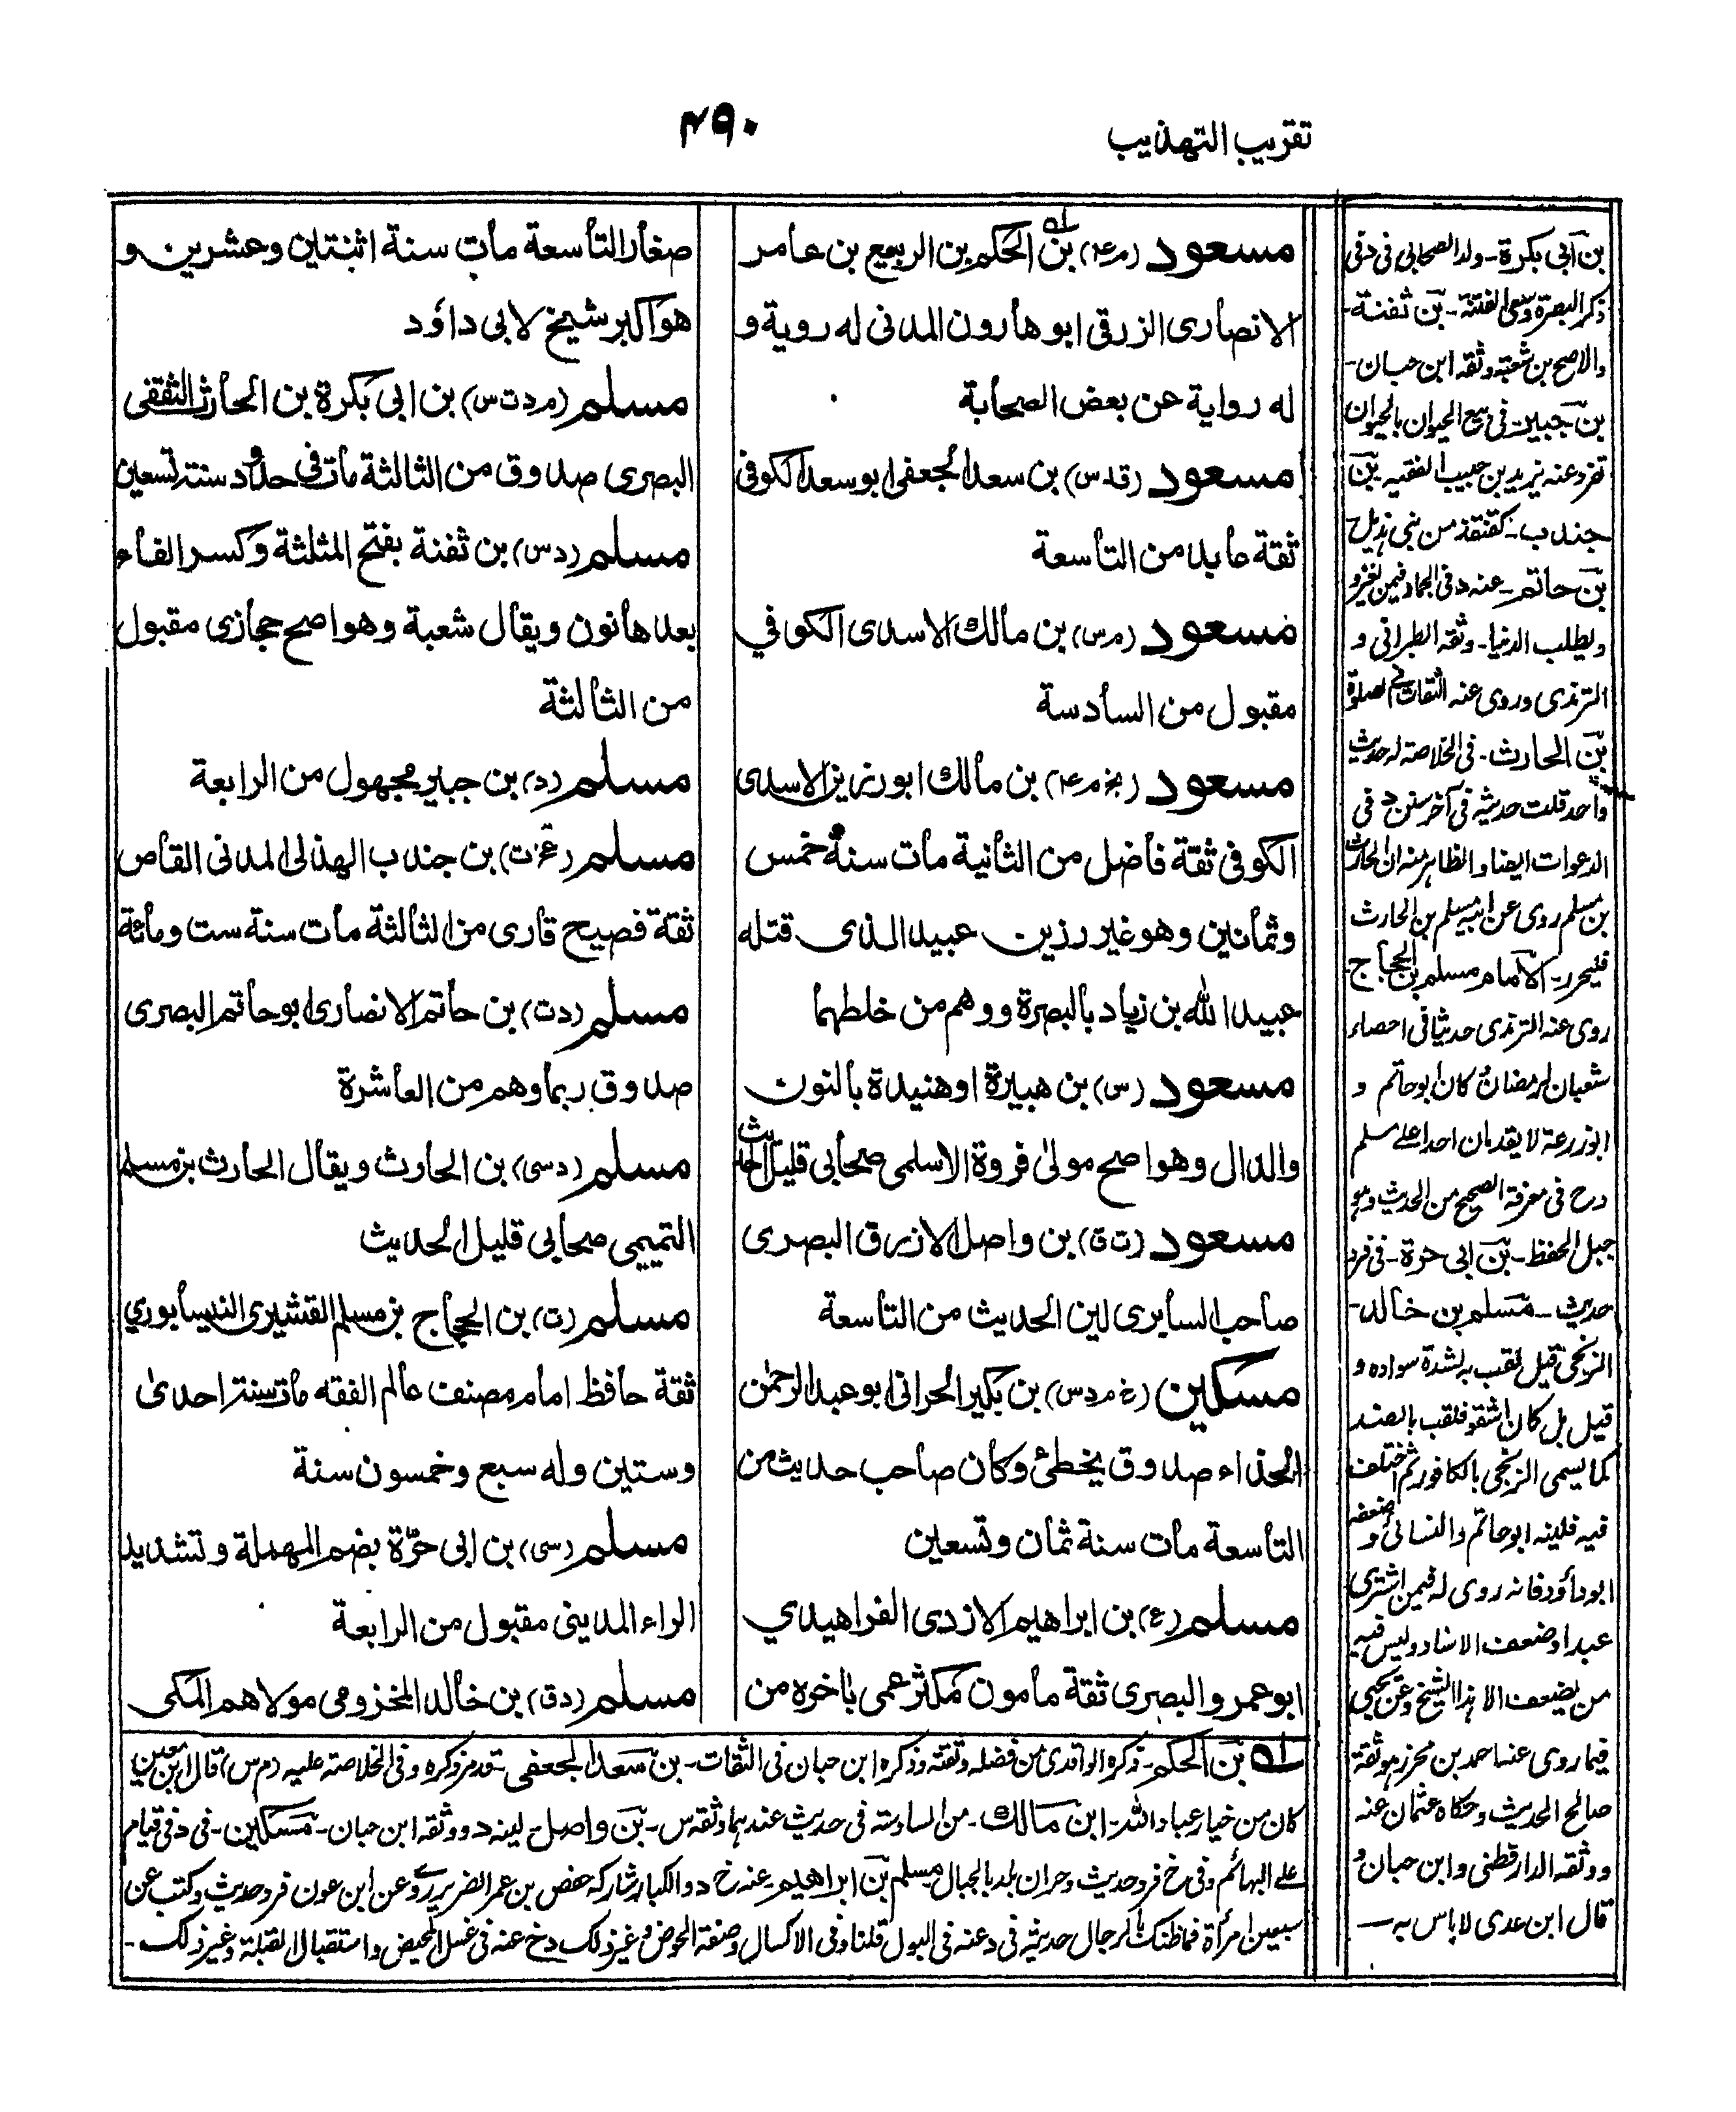 تقريب التهذيب
٤٩٠
مسعود (م عه) بن الحكم بن الربيع بن عامر
الانصارى الزرقى ابو هارون المدنى له روية و
له رواية عن بعض الصحابة
مسعود (قد س) بن سعد الجعفى ابو سعد الكوفى
ثقة عابد من التاسعة
مسعود (م س) بن مالك الاسدى الكوفي
مقبول من السادسة
مسعود (بخ م عه) بن مالك ابو رزين الاسدى
الكوفى ثقة فاضل من الثانية مات سنة خمس
وثمانين وهو غير رزين عبيد الذى قتله
عبيد الله بن زياد بالبصرة ووهم من خلطهما
مسعود (س) بن هبيرة او هنيدة بالنون
والدال وهو اصح مولىٰ فروة الاسلمى صحابى قليل الحديث
مسعود (ت ق) بن واصل الازرق البصرى
صاحب السابرى لين الحديث من التاسعة
مسكين (خ م د س) بن بكير الحرانى ابو عبد الرحمٰن
الحذاء صدوق يخطئ وكان صاحب حديث من
التاسعة مات سنة ثمان وتسعين
مسلم (ع) بن ابراهيم الازدى الفراهيدي
ابو عمرو البصرى ثقة مامون مكثر عمى باخره من
صغار التاسعة مات سنة اثنتين وعشرين و
هو اكبر شيخ لابى داؤد
مسلم (م د ت س) بن ابى بكرة بن الحارث الثقفى
البصرى صدوق من الثالثة مات فى حدود سنة تسعين
مسلم (د س) بن ثفنة بفتح المثلثة وكسر الفاء
بعدها نون ويقال شعبة وهو اصح حجازى مقبول
من الثالثة
مسلم (د) بن جبير مجهول من الرابعة
مسلم (عخ ت) بن جندب الهذلى المدنى القاص
ثقة فصيح قارى من الثالثة مات سنة ست ومائة
مسلم (د ت) بن حاتم الانصارى ابو حاتم البصرى
صدوق ربما وهم من العاشرة
مسلم (د سى) بن الحارث ويقال الحارث بن مسلم
التميمى صحابى قليل الحديث
مسلم (ت) بن الحجاج بن مسلم القشيرى النيسابوري
ثقة حافظ امام مصنف عالم الفقه مات سنة احدىٰ
وستين وله سبع وخمسون سنة
مسلم (سى) بن ابى حرّة بضم المهملة وتشديد
الراء المدينى مقبول من الرابعة
مسلم (د ق) بن خالد المخزومى مولاهم المكى
بن ابى بكرة - ولد الصحابى فى د فى
ذكر البصرة وسعى الفتنة - بن ثفنة -
والاصح بن شعبة وثقه ابن حبان -
بن جبير - فى بيع الحيوان بالحيوان
تفرد عنه يزيد بن حبيب الفقيه بن
جندب - كقنفذ من بنى هذيل
بن حاتم - عنه د فى الجهاد فيمن يغزو
ويطلب الدنيا - وثقه الطبرانى و
الترمذى وروى عنه الثقات فى الصلوة
بن الحارث - فى الخلاصة له حديث
واحد قلت حديثه فى آخر سنن د فى
الدعوات ايضا والظاهر منه ان الحارث
بن مسلم روى عن ابيه مسلم بن الحارث
فليحرر - الامام مسلم بن الحجاج
روى عنه الترمذى حديثا فى احصاء
شعبان لرمضان كان ابو حاتم و
ابو زرعة لا يقدمان احدا على مسلم
درح فى معرفة الصحيح من الحديث وهو
جبل الحفظ - بن ابى حرة - فى فرد
حديث - مسلم بن خالد -
الزنجى قيل لقب به لشدة سواده و
قيل بل كان اشقر فلقب بالضد
كما يسمى الزنجى بالكافور ثم اختلف
فيه فلينه ابو حاتم والنسائى وضعفه
ابو داؤد فانه روى له فيمن اشترى
عبدا وضعف الاسناد وليس فيه
من يضعف الا هذا الشيخ وعن يحيى
فيما روى عنه احمد بن محرز هو ثقة
صالح الحديث وحكاه عثمان عنه
ووثقه الدارقطنى وابن حبان و
قال ابن عدى لا باس به
له بن الحكم - ذكره الواقدى من فضله وثقته وذكره ابن حبان فى الثقات - بن سعد الجعفى - قد مر ذكره وفى الخلاصة عليه (م س) قال ابن معين
كان من خيار عباد الله - ابن مالك - من السادسة فى حديث عندهما وثقه س - بن واصل - لينه د ووثقه ابن حبان - مسكين - فى د فى قيام
على البهائم وفى خ فرد حديث وحران بلد بالجبال مسلم بن ابراهيم عنه خ د والكبار شاركه حفص بن عمر الضرير روى عن ابن عون فرد حديث وكتب عن
سبعين امرأة فما ظنك بالرجال حديثه فى د عنه فى البول قلنا وفى الاكسال وصفة الحوض وغير ذلك وخ عنه فى غسل المحيض واستقبال القبلة وغير ذلك -